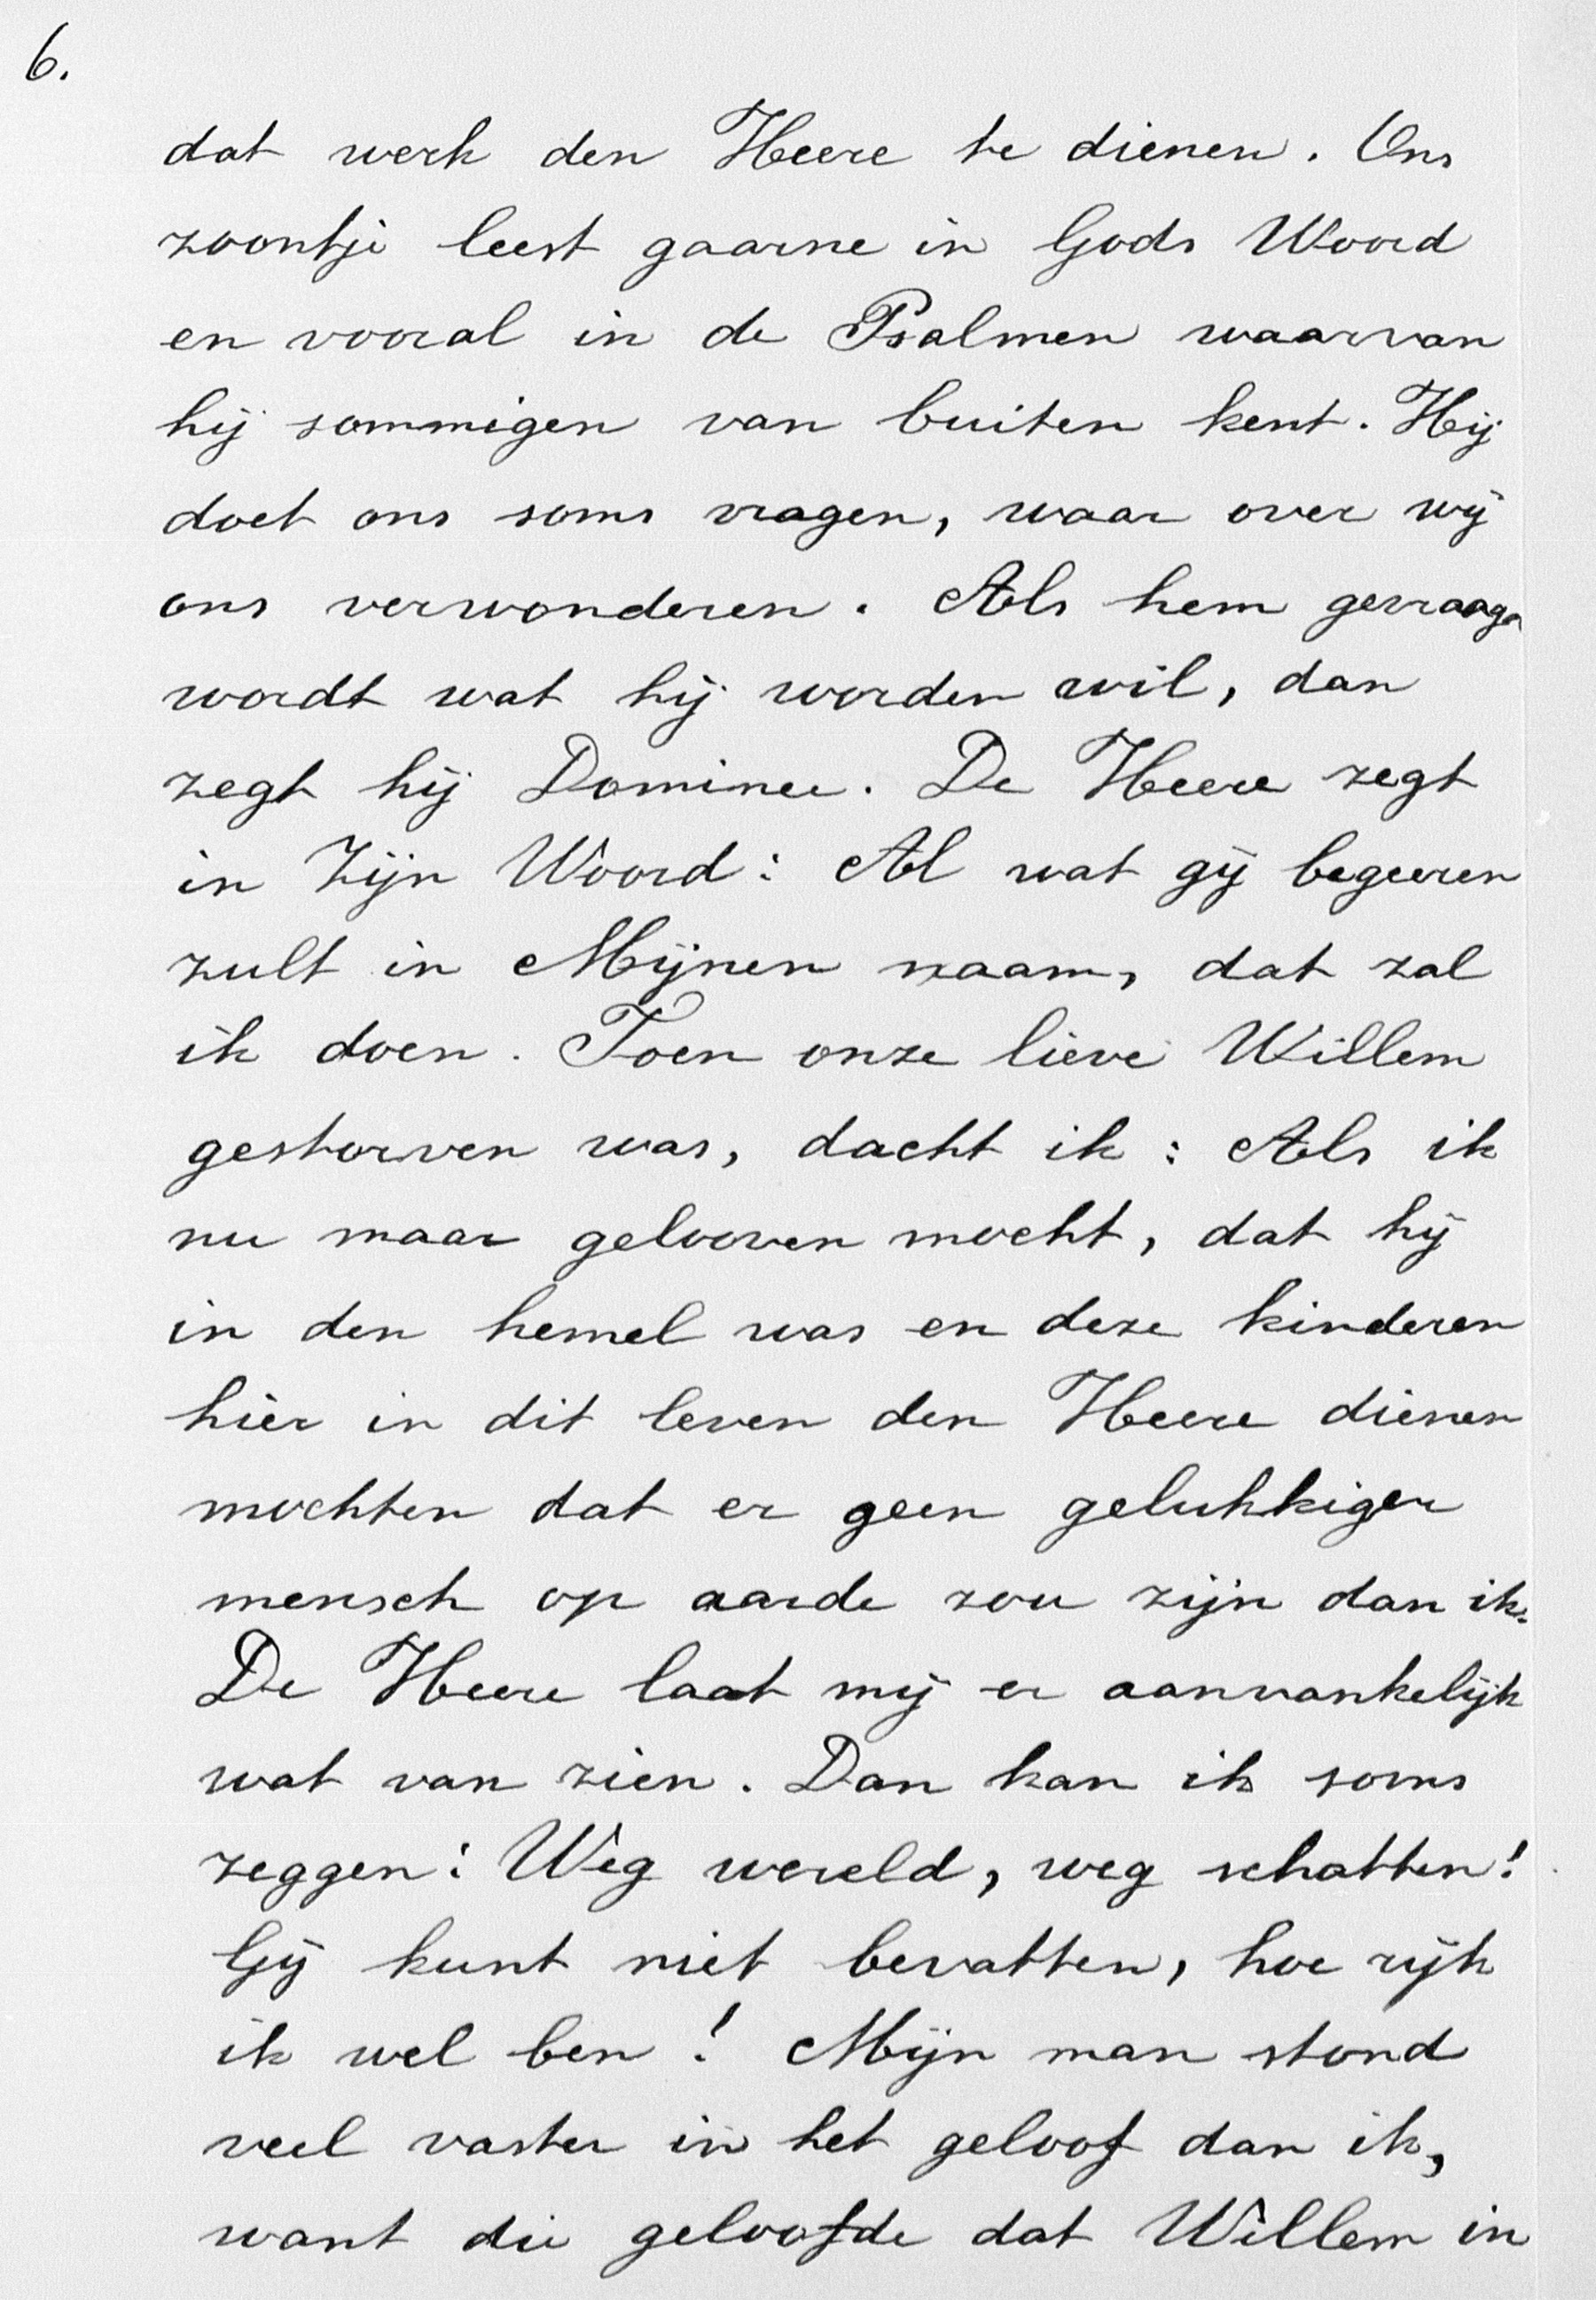 6.
dat werk den Heere te dienen. Ons
zoontje leest gaarne in Gods Woord
en vooral in de Psalmen waarvan
hij sommigen van buiten kent. Hij
doet ons soms vragen, waar over wij
ons verwonderen. Als hem gevraagd
wordt wat hij worden wil, dan
zegt hij Dominee. De Heere zegt
in Zijn Woord: Al wat gij begeeren
zult in Mijnen naam, dat zal
ik doen. Toen onze lieve Willem
gestorven was, dacht ik: Als ik
nu maar gelooven mocht, dat hij
in den hemel was en deze kinderen
hier in dit leven den Heere dienen
mochten dat er geen gelukkiger
mensch op aarde zou zijn dan ik.
De Heere laat mij er aanvankelijk
wat van zien. Dan kan ik soms
zeggen: Weg wereld, weg schatten!
Gij kunt niet bevatten, hoe rijk
ik wel ben! Mijn man stond
veel vaster in het geloof dan ik,
want die geloofde dat Willem in